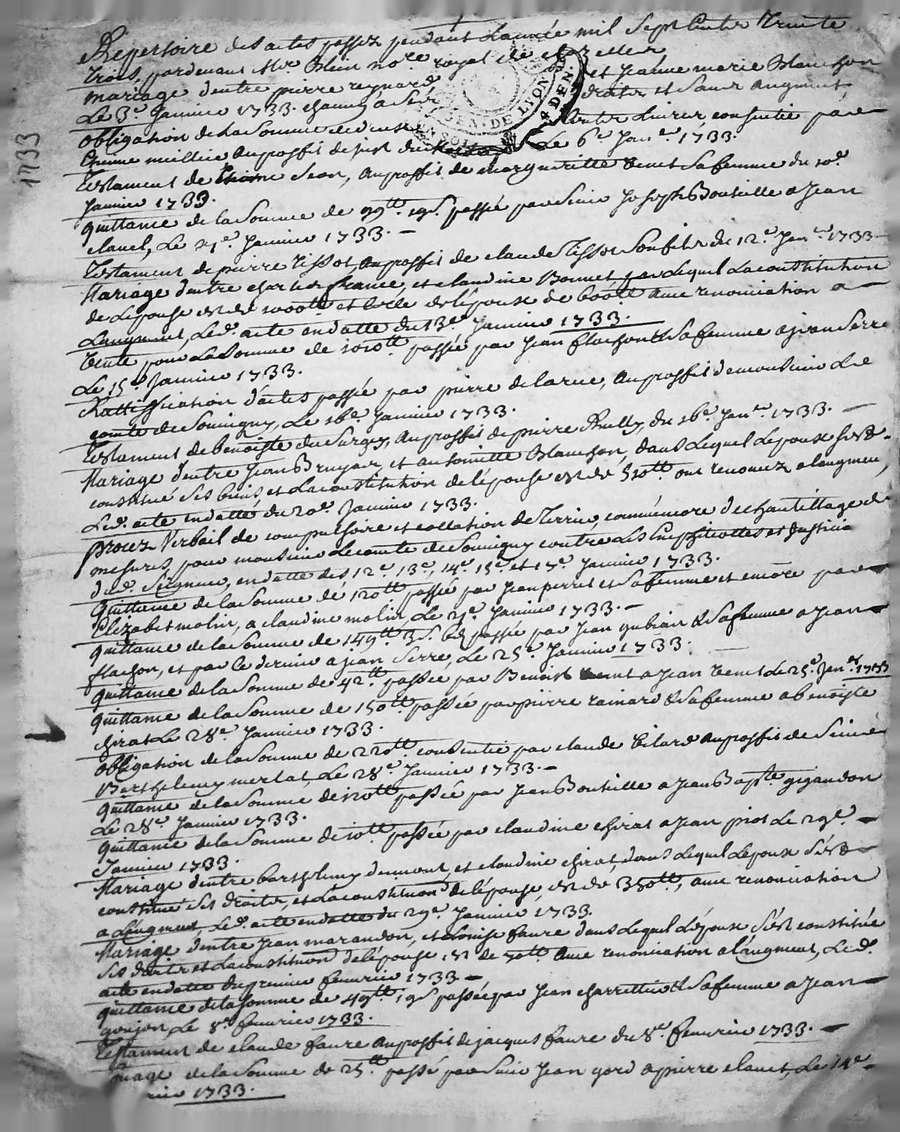 Repertoire des actes passez pendant Lannée mil sept Cents Trente
trois, pardevant Mr. Blein nore royal de Chazelles
mariage d'entre pierre reynard et Jeanne marie Blanchon
Le 3e Janvier 1733. droits et sans augment,
GEN. DE LYON
4 DEN.
obligation de La somme de Livres consentie par
millie au proffit de Le 6e Janer 1733.
1733
Testament de Jean, au proffit de margueritte sa femme du 10e
Janvier 1733.
quittance de la somme de 99tt 19s passée par sieur Joseph Bouteille a Jean
clavel, Le 21e Janvier 1733. -
Testament de pierre Tissot au proffit de claude Tissot son fils du 12e Janer 1733
Mariage d'entre charles france, et claudine Bonnet par Lequel La constitution
de L'epouse est de 1000tt et celle de L'époux de 600tt avec renonciation a
L'augment, Le d. acte en datte du 13e Janvier 1733.
Vente pour La somme de 1010tt passée par Jean flachon & sa femme a jean Serre
Le 15e Janvier 1733.
Rattiffication d'actes passée par pierre delarue, au proffit de monsieur Le
comte de Souvigny, Le 16e Janvier 1733.
Testament de Benoiste du Surgey, au proffit de pierre Rully du 16e Janer 1733. -
Mariage d'entre Jean Bruyas, et antoinette Blanchon, dans Lequel L'epoux s'est
constitué ses biens, et La constitution de L'épouse est de 350tt ont renoncez a l'augment,
Le d. acte en datte du 20e Janvier 1733.
procez Verbail de compulsoire et collation de Terrier, commencé d'echantillage de
mesures, pour monsieur Le comte de Souvigny contre Les
du d. Seigneur, en datte des 12e 13e, 14e 15e et 17e Janvier 1733.
Quittance de La somme de 120tt passée par Jean perret et sa femme et encore par
Elizabet molin, a claudine molin Le 21e Janvier 1733. -
quittance de La somme de 149tt 3s 6d passée par Jean gubian & sa femme a Jean
flachon, et par Le dernier a jean Serre, Le 25e Janvier 1733.
quittance de La somme de 42tt passée par Benoist Venet a Jean Venet Le 25e Janer 1733
quittance de La somme de 150tt passée par pierre rainard & sa femme a benoiste
chirat Le 28e Janvier 1733.
obligation de La somme de 220tt consentie par claude Vilard au proffit de Sieur
Barthelemy merlat, Le 28e Janvier 1733. -
quittance de La somme de 120tt passée par Jean Bouteille a Jean Baptte gigandon
Le 28e Janvier 1733.
quittance de La somme de 10tt passée par claudine chirat a Jean piot Le 29e -
Janvier 1733.
Mariage d'entre barthelemy dumont, et claudine chirat, dans Lequel L'epoux s'est
constitué ses droits, et La constitution de L'epouse est de 350tt, avec renonciation
a L'augment, Le d. acte en datte du 29e Janvier 1733.
Mariage d'entre Jean marandon, et Louise faure dans Lequel L'époux s'est constitué
ses droits et La constitution de L'epouse est de 50tt avec renonciation a L'augment, Le d.
acte en datte du premier fevvrier 1733 -
quittance de La somme de 49tt 19s passée par Jean charretier & sa femme a Jean
goujon Le 8e fevvrier 1733.
Testament de claude faure au proffit de jacques faure du 8e fevvrier 1733. -
de La somme de 25tt passé par sieur Jean gord a pierre clavel, Le 14e
1733.